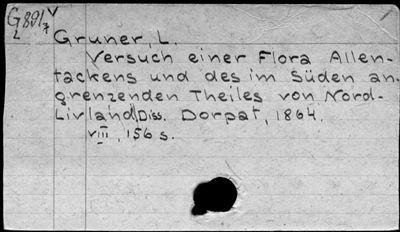 G 891/7 V
L
Gruner, L.
Versuch einer Flora Allen-
tackens und des im Süden an-
grenzenden Theiles von Nord-
Livland. Diss. Dorpat, 1864.
VIII, 156 s.